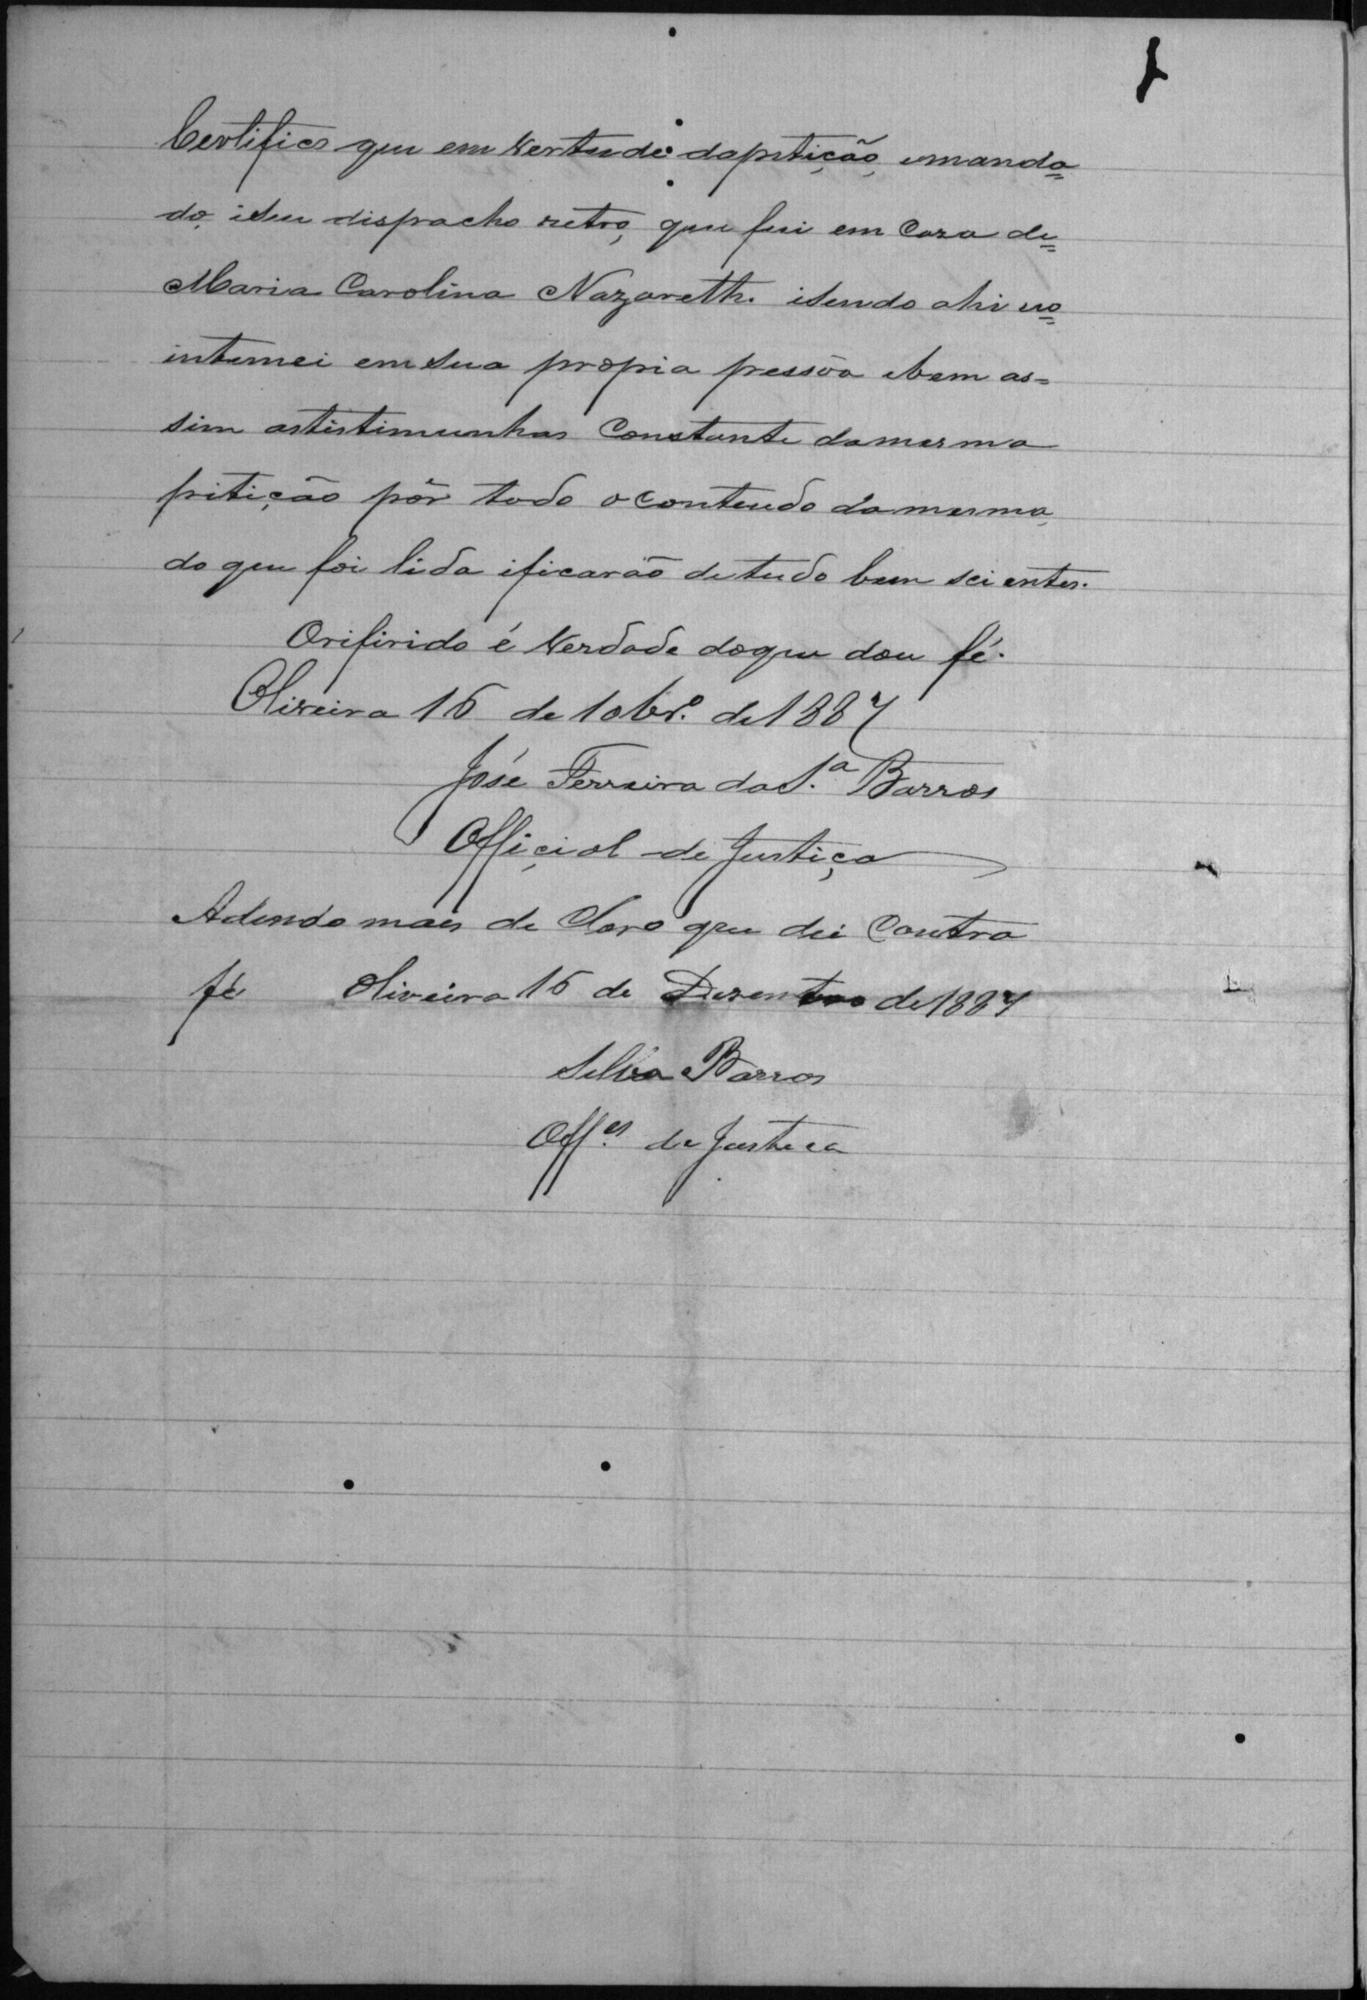 Certifico que em vertude dapitição, emanda=
do, iseu dispacho retro, que fui em Caza de=
Maria Carolina Nazareth. isendo ahi eo=
intemei em sua propria pressõa ebem as=
sim astistimunhas Constante damesma
pitição pôr todo oconteudo damesma,
do que foi lida ificarão de tudo bem scientes.
Orifirido é Verdade doque dou fé.
Oliveira 16 de 10br.º de 1887
José Ferreira da S.ª Barros
Official de Justiça
Adendo mais de Claro que dei Contra
fé Oliveira 16 de Dezembro de 1887
Silva Barros
Off.es de Justica